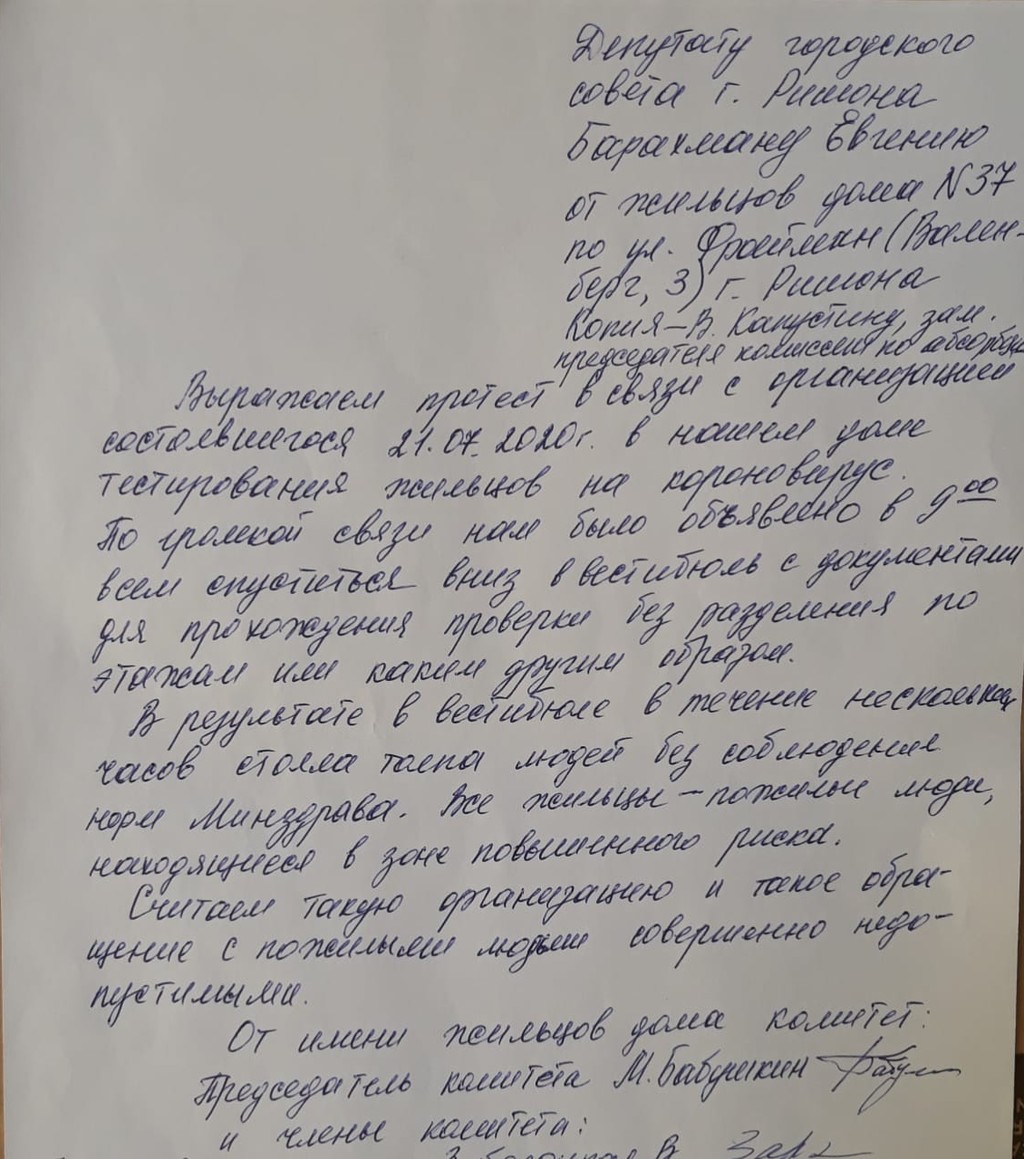 Депутату городского
совета г. Ришона
Барахману Евгению
от жильцов дома N37
по ул. Фрайман (Вален-
берг, 3) г. Ришона
Копия – В. Капустину, зам.
председателя комиссии по абсорбц
Выражаем протест в связи с организацией
состоявшегося 21.07.2020г. в нашем доме
тестирования жильцов на короновирус.
По громкой связи нам было объявлено в 9 00
всем опуститься вниз в вестибюль с документами
для прохождения проверки без разделения по
этажам или каким другим образом.
В результате в вестибюле в течение нескольких
часов стояла толпа людей без соблюдения
норм Минздрава. Все жильцы – пожилые люди,
находящиеся в зоне повышенного риска.
Считаем такую организацию и такое обра-
щение с пожилыми людьми совершенно недо-
пустимыми.
От имени жильцов дома комитет:
Председатель комитета М. Бабушкин
и члены комитета: